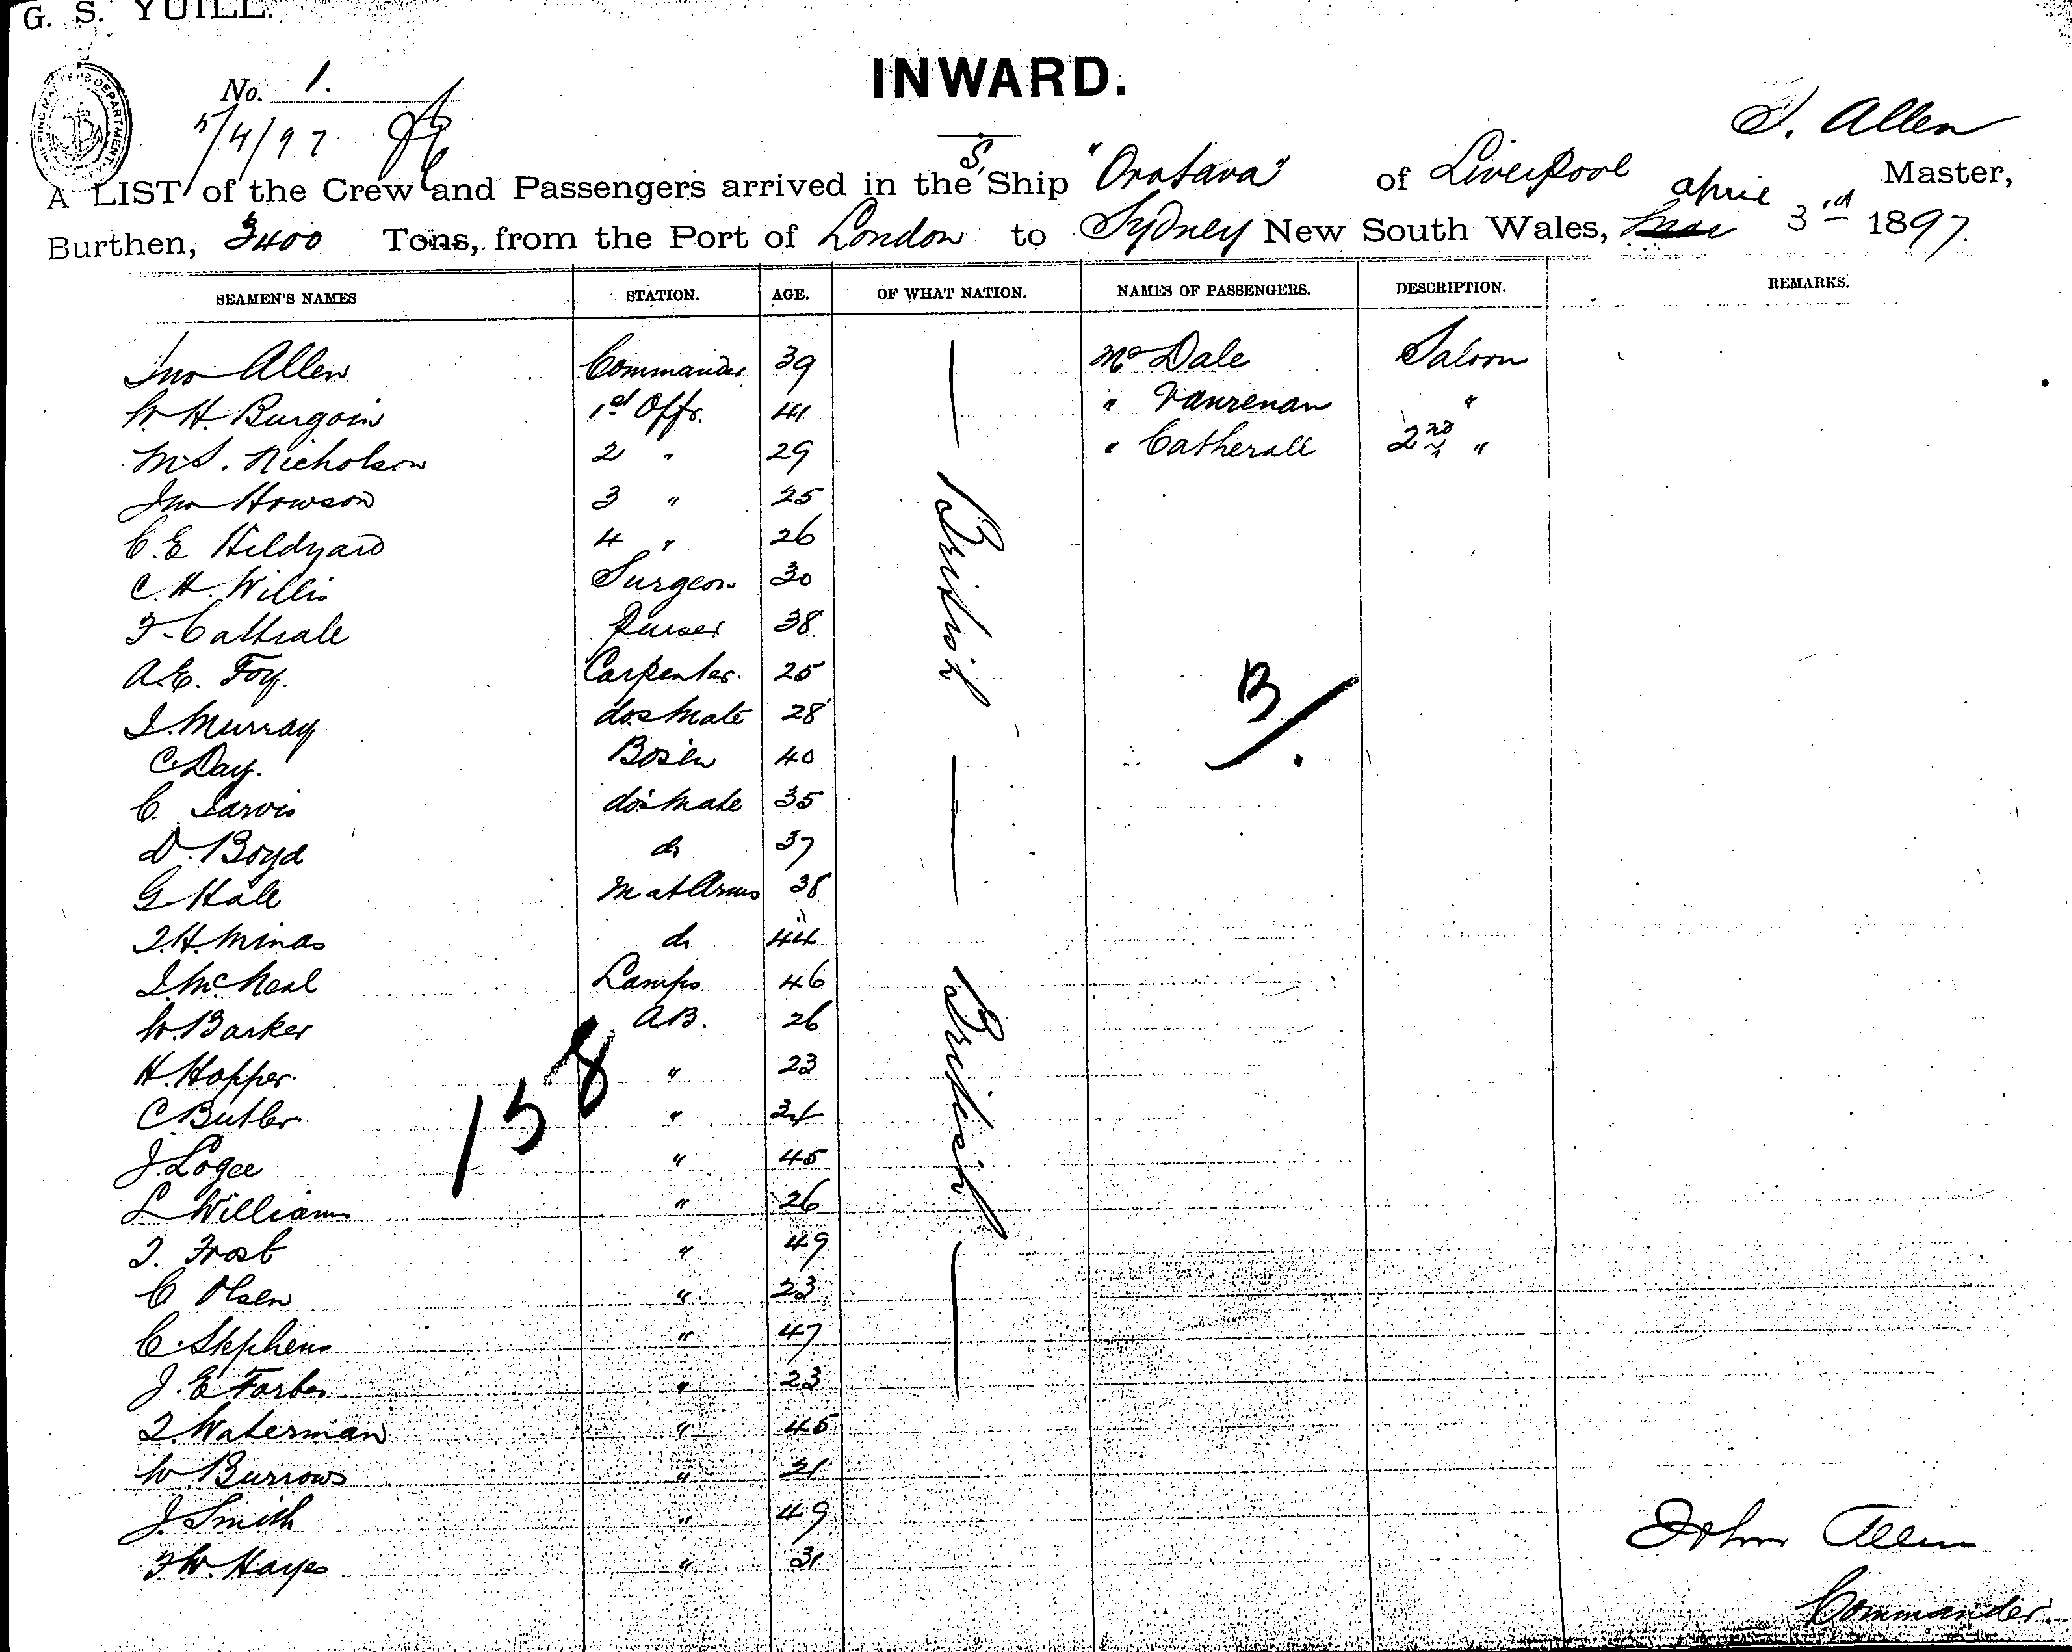 G. S. YUILL.
INWARD.
No. 1.
5/4/97
J. Allen
A LIST of the Crew and Passengers arrived in the S. Ship "Orotava" of Liverpool Master,
april
Burthen, 3400 Tons, from the Port of London to Sydney New South Wales, 3rd 1897.
SEAMEN'S NAMES STATION. AGE. OF WHAT NATION. NAMES OF PASSENGERS. DESCRIPTION. REMARKS.
Jno Allen Commander 39 Mr Dale Saloon
W. H. Burgoin 1st Offr. 41 " Vanrenan "
M. S. Nicholson 2 " 29 " Catherall 2nd "
Jno Howson 3 " 25
C. E Hildyard 4 " 26
C. H. Willis Surgeon 30
F. Cattrale Purser 38
A. E. Foy. Carpenter 25
J. Murray do's Mate 28
C Day. Bos'en 40
C. Jarvis do's Mate 35
D. Boyd do 37
G Hall M at Arms 38
J. H. Minas do 44
J. McNeal Lamps 46
W. Barker A.B. 26
H. Hopper " 23
C Butler "
J. Logee " 45
L Williams " 26
J. Frost " 49
C Olsen " 23
C. Stephens " 47
J. E Forbes " 23
J. Waterman " 45
W Burrows " 21
J. Smith " 49
F W. Hayes " 31
British
British
B/.
158
John Allen
Commander